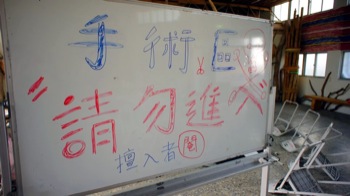 手術區
請勿進入
擅入者閹